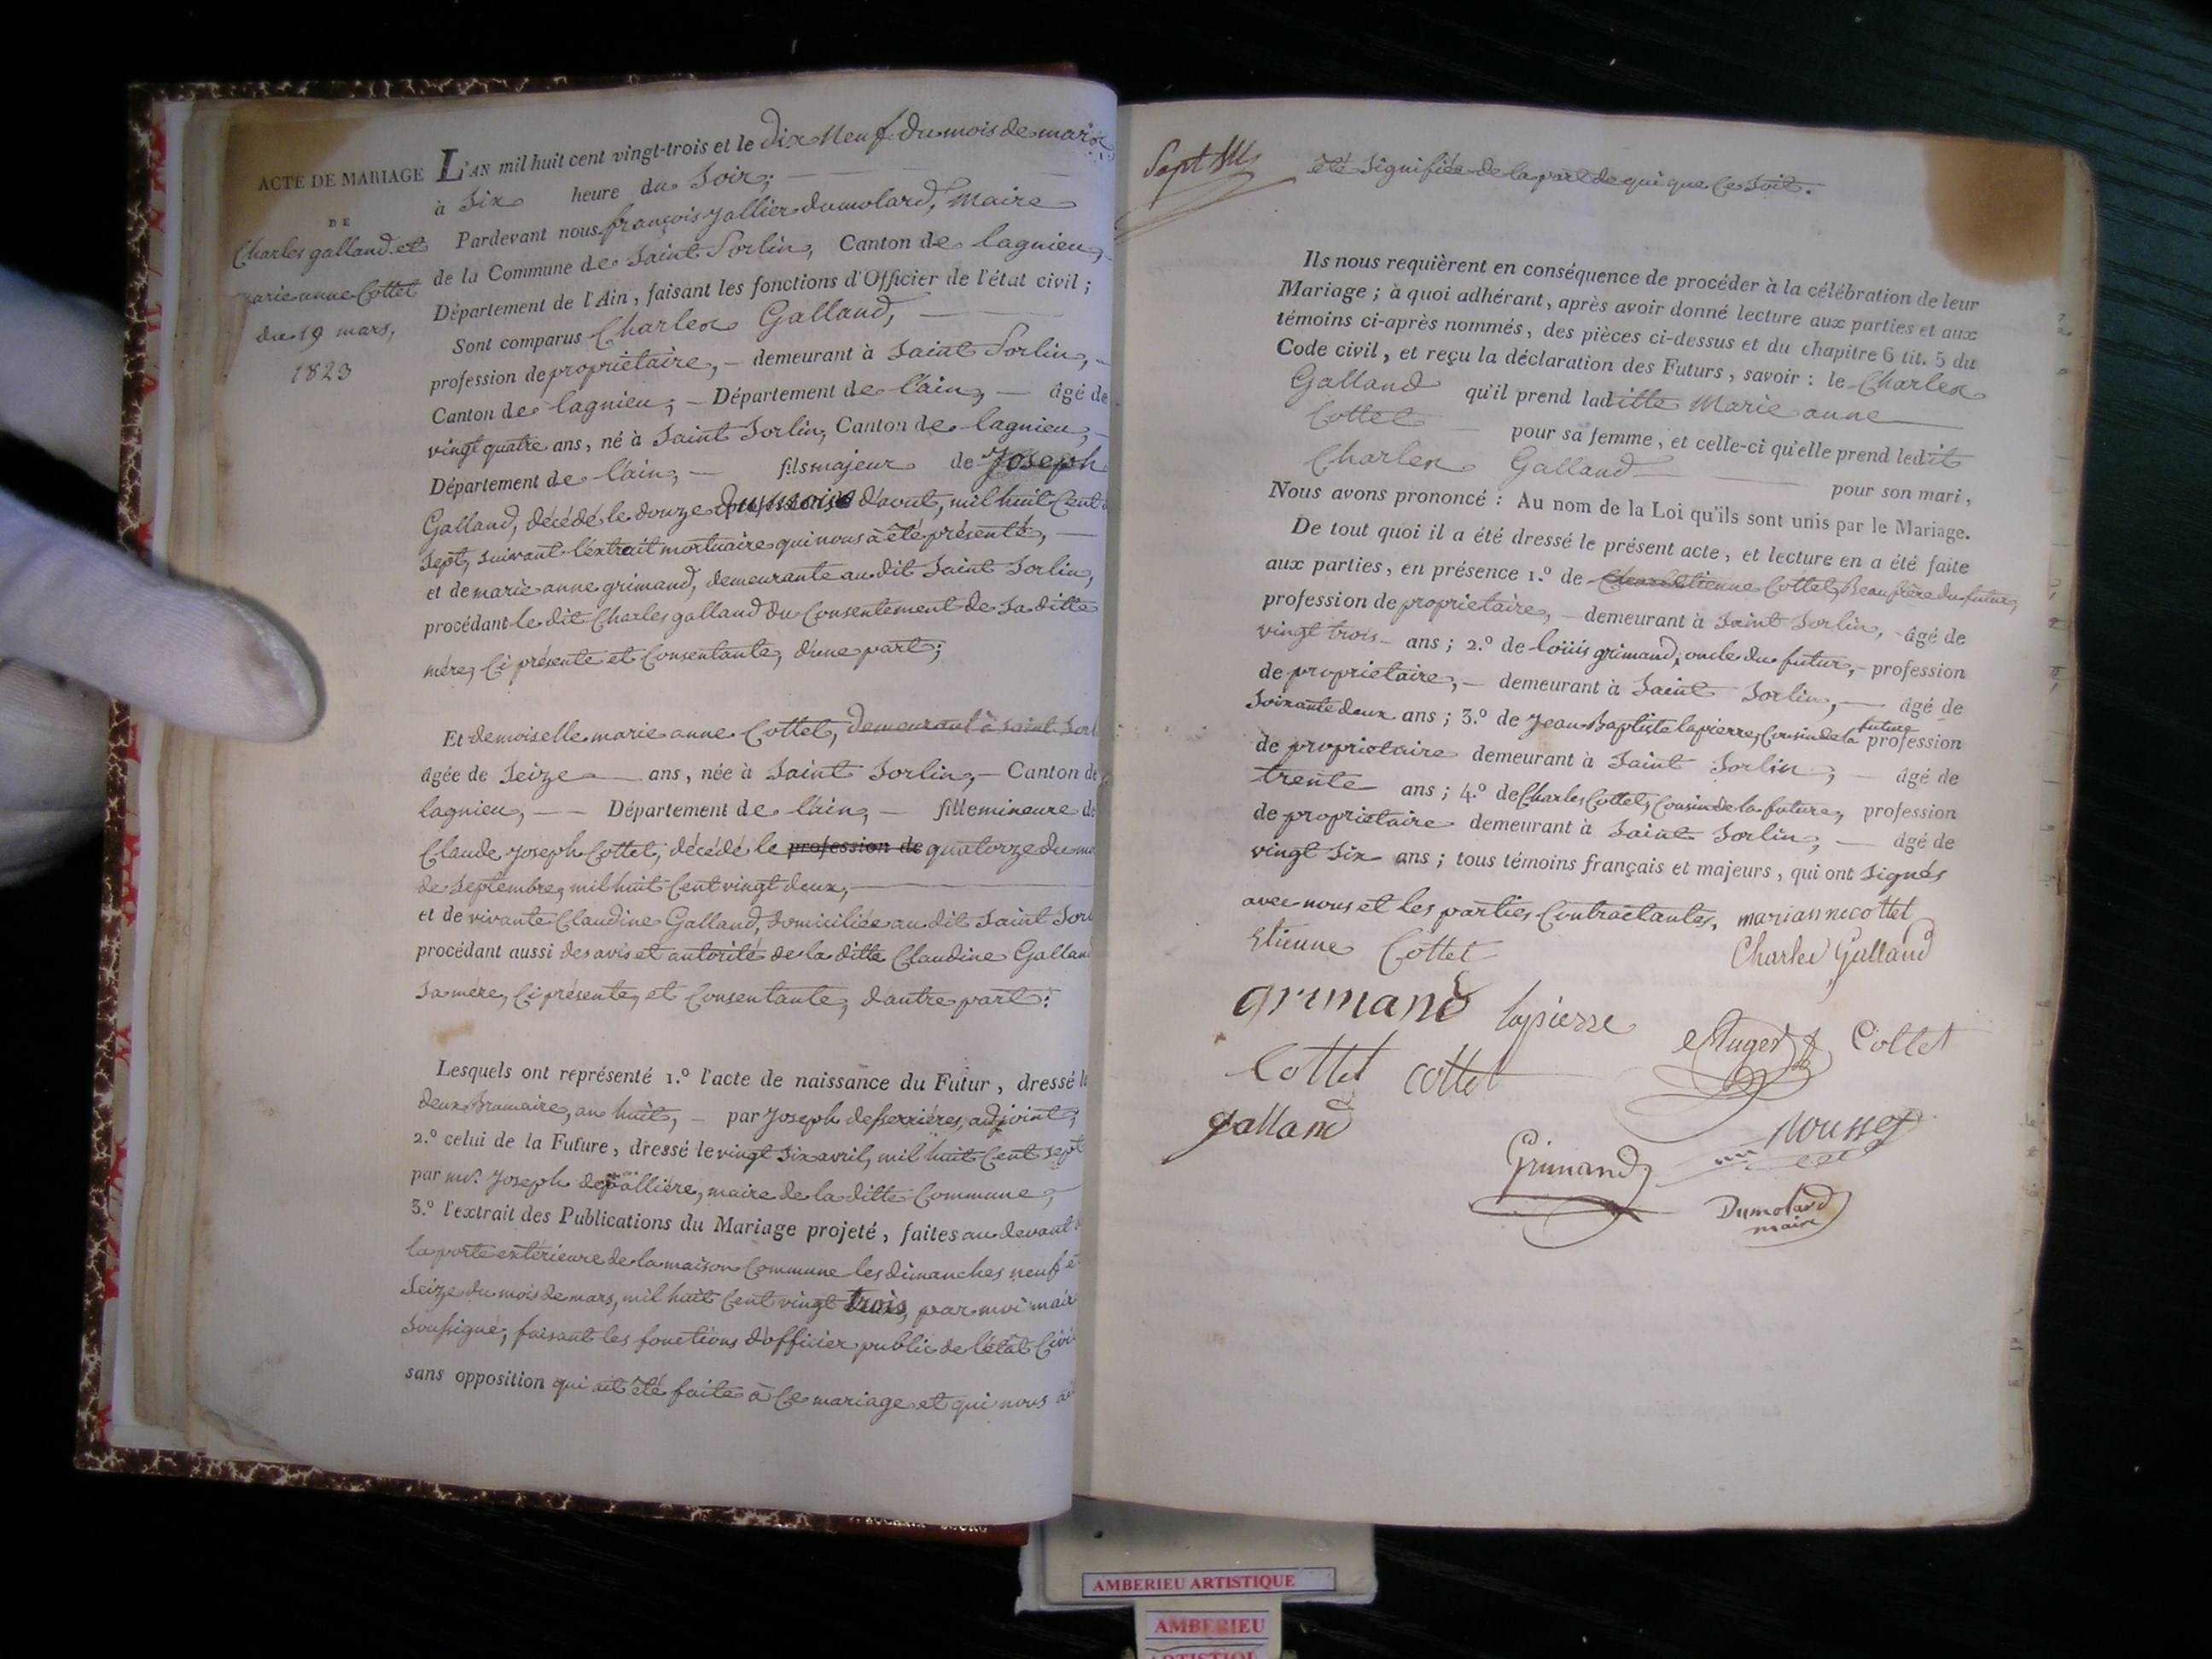 ACTE DE MARIAGE
DE
Charles galland et
marie anne Cottet
du 19 mars,
1823
L'AN mil huit cent vingt-trois et le dix Neuf du mois de mars
à Six heure du Soir;
Pardevant nous françois Jallier dumolard, Maire
de la Commune de Saint Sorlin, Canton de lagnieu,
Département de l'Ain, faisant les fonctions d'Officier de l'état civil;
Sont comparus Charles Galland,
profession de propriétaire, - demeurant à Saint Sorlin, -
Canton de lagnieu, - Département de l'ain, - âgé de
vingt quatre ans, né à Saint Sorlin, Canton de lagnieu,
Département de l'ain, - fils majeur de Joseph
Galland, décédé le douze du mois d'aout, mil huit Cent
Sept, suivant l'extrait mortuaire qui nous à été présenté, -
et de marie anne grimand, demeurante au dit Saint Sorlin,
procédant le dit Charles galland du Consentement de Sa ditte
mère, Ci présente et Consentante, d'une part;
Et demoiselle marie anne Cottet, demeurant à saint Sorl
âgée de Seize ans, née à Saint Sorlin, - Canton de
lagnieu, - - Département de l'ain, - fille mineure de
Claude Joseph Cottet, décédé le profession de quatorze du mo
de Septembre, mil huit Cent vingt deux, -
et de vivante Claudine Galland, domiciliée au dit Saint Sorl
procédant aussi des avis et autorité de la ditte Claudine Gallan
Sa mère, Ci présente, et Consentante, d'autre part:
Lesquels ont représenté 1.º l'acte de naissance du Futur, dressé le
deux Brumaire, an huit, - par Joseph desserrières, adjoint,
2.º celui de la Future, dressé le vingt Six avril, mil huit Cent Sept
par mr. Joseph maire de la ditte Commune,
3.º l'extrait des Publications du Mariage projeté, faites au devant
la porte extérieure de la maison Commune les dimanches neuf et
Seize du mois de mars, mil huit Cent vingt trois, par moi maire
Soussigné, faisant les fonctions d'officier public de l'état Civil
sans opposition qui ait été faite à Ce mariage et qui nous ai
Sept
été Signifiée de la part de qui que Ce Soit.
Ils nous requièrent en conséquence de procéder à la célébration de leur
Mariage; à quoi adhérant, après avoir donné lecture aux parties et aux
témoins ci-après nommés, des pièces ci-dessus et du chapitre 6 tit. 5 du
Code civil, et reçu la déclaration des Futurs, savoir: le Charles
Galland qu'il prend laditte Marie anne
Cottet pour sa femme, et celle-ci qu'elle prend ledit
Charles Galland pour son mari,
Nous avons prononcé: Au nom de la Loi qu'ils sont unis par le Mariage.
De tout quoi il a été dressé le présent acte, et lecture en a été faite
aux parties, en présence 1.º de Etienne Cottet, Beaufrère du futur,
profession de propriétaire, - demeurant à Saint Sorlin, - âgé de
vingt trois - ans; 2.º de loüis grimand, oncle du futur, - profession
de propriétaire, - demeurant à Saint Sorlin, - âgé de
Soixante deux ans; 3.º de Jean Baptiste lapierre, Cousin de la future profession
de propriétaire demeurant à Saint Sorlin, - âgé de
trente ans; 4.º de Charles Cottet, Cousin de la future, profession
de propriétaire demeurant à Saint Sorlin, - âgé de
vingt Six ans; tous témoins français et majeurs, qui ont Signés
avec nous et les parties Contractantes, marianne cottet
Etienne Cottet Charles Galland
grimand lapierre Cottet
Cottet cottet
galland
Grimand
Dumolard
maire
AMBERIEU ARTISTIQUE
AMBERIEU
ARTISTIQUE